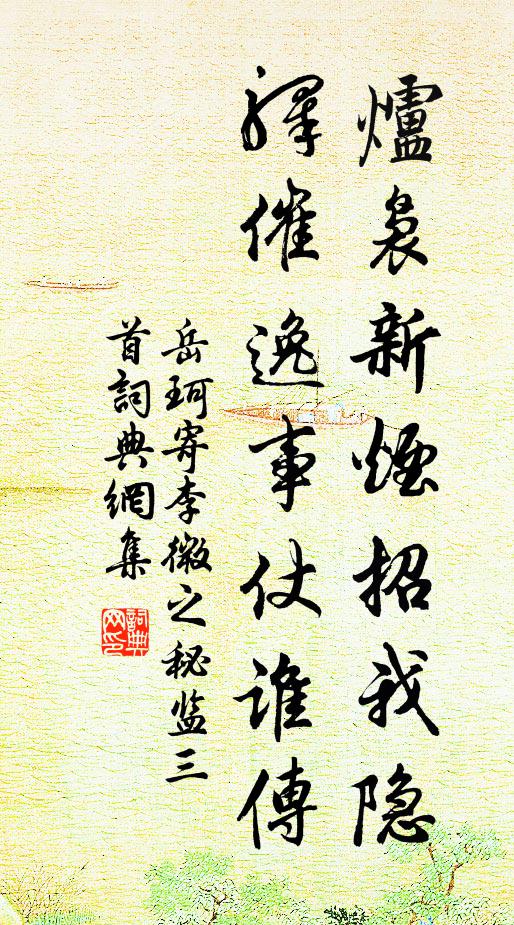 爐裊新煙招我隐
驛催逸事仗誰傳
岳珂寄李微之秘监三
首詞典網集
詞典网印